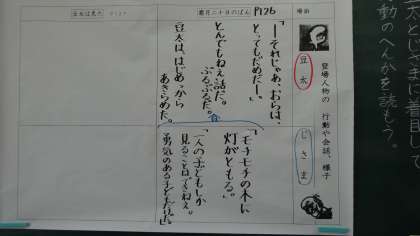 動のへんかを読もう。
場面
登場人物の 行動や会話、様子
豆太
じさま
霜月二十日のばん
P126
「―それじゃあ、おらは、
とってもだめだ―。」
とんでもねえ話だ。
ぶるぶるだ。
豆太は、はじめっから
あきらめた。
「モチモチの木に
灯がともる。」
「一人の子どもしか
見ることはできねえ。
勇気のある子どもだけだ。」
豆太は見た